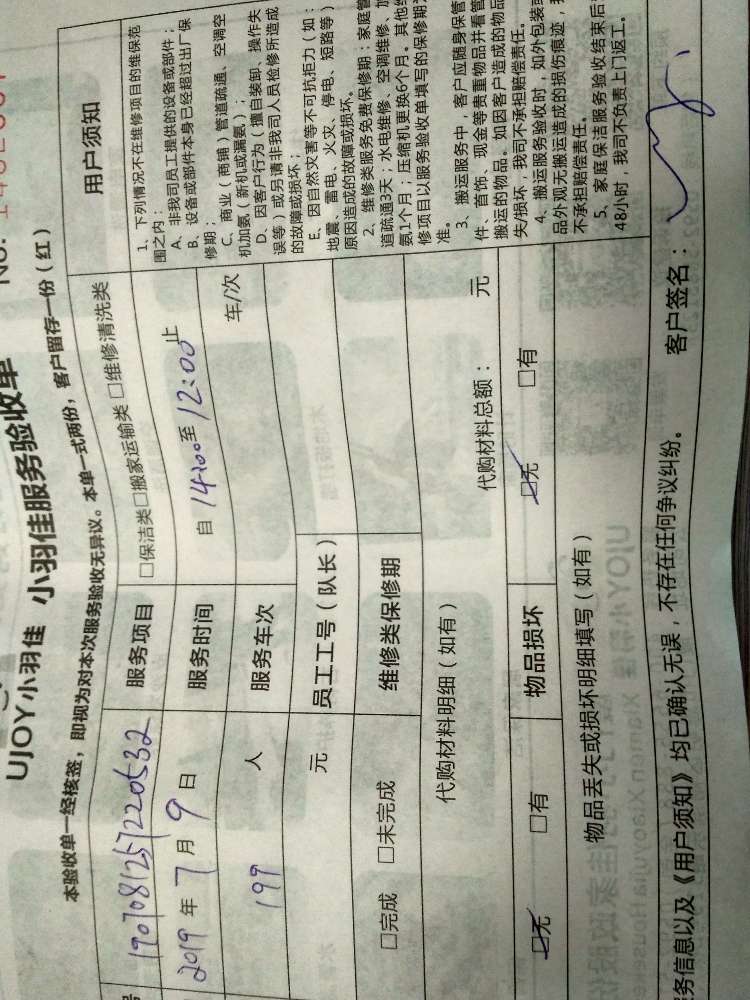 No. 1402
UJOY小羽佳 小羽佳服务验收单
本验收单一经核签，即视为对本次服务验收无异议。本单一式两份，客户留存一份（红）
1907081257220532 服务项目 □保洁类□搬家运输类 □维修清洗类
2019年7月9日 服务时间 自14:00至12:00止
199 人 服务车次 车/次
元 员工工号（队长）
□完成 □未完成 维修类保修期
代购材料明细（如有） 代购材料总额： 元
□无 □有 物品损坏 □无 □有
物品丢失或损坏明细填写（如有）
用户须知
1、下列情况不在维修项目的维保范
围之内：
A、非我司员工提供的设备或部件；
B、设备或部件本身已经超过出厂保
修期；
C、商业（商铺）管道疏通、空调空
机加氨（新机或漏氨）；
D、因客户行为（擅自装卸、操作失
误等）或另请非我司人员检修所造成
的故障或损坏；
E、因自然灾害等不可抗拒力（如：
地震、雷电、火灾、停电、短路等）
原因造成的故障或损坏。
2、维修类服务免费保修期：家庭管
道疏通3天；水电维修、空调维修、加
氨1个月；压缩机更换6个月。其他维
修项目以服务验收单填写的保修期为
准。
3、搬运服务中，客户应随身保管
件、首饰、现金等贵重物品并看管
搬运的物品，如因客户造成的物品
失/损坏，我司不承担赔偿责任。
4、搬运服务验收时，如外包装或
品外观无搬运造成的损伤痕迹，我
不承担赔偿责任。
5、家庭保洁服务验收结束后
48小时，我司不负责上门返工。
务信息以及《用户须知》均已确认无误，不存在任何争议纠纷。 客户签名：